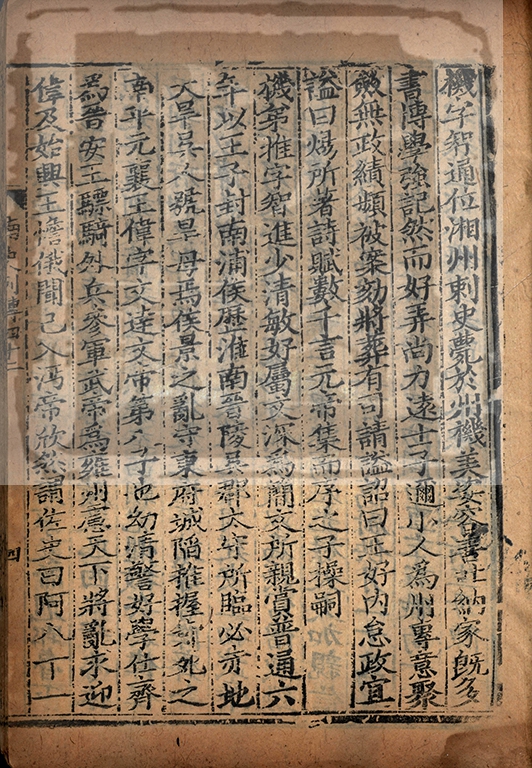 機字智通位湘州刺史薨於州機美姿容善吐納家既多
書博學強記然而好弄尚力遠士子邇小人為州專意聚
斂無政績頻被案劾將葬有司請諡詔曰王好內怠政宜
諡曰煬所著詩賦數千言元帝集而序之子操嗣
機弟推字智進少清敏好屬文深為簡文所親賞普通六
年以王子封南浦侯歷淮南晉陵吳郡太守所臨必赤地
大旱吳人號旱母焉侯景之亂守東府城陷推握節死之
南平元襄王偉字文達文帝第八子也幼清警好學仕齊
為晉安王驃騎外兵參軍武帝為雍州慮天下將亂求迎
偉及始興王憺俄聞已入沔帝欣然謂佐史曰阿八十一
南史列傳四十二
四